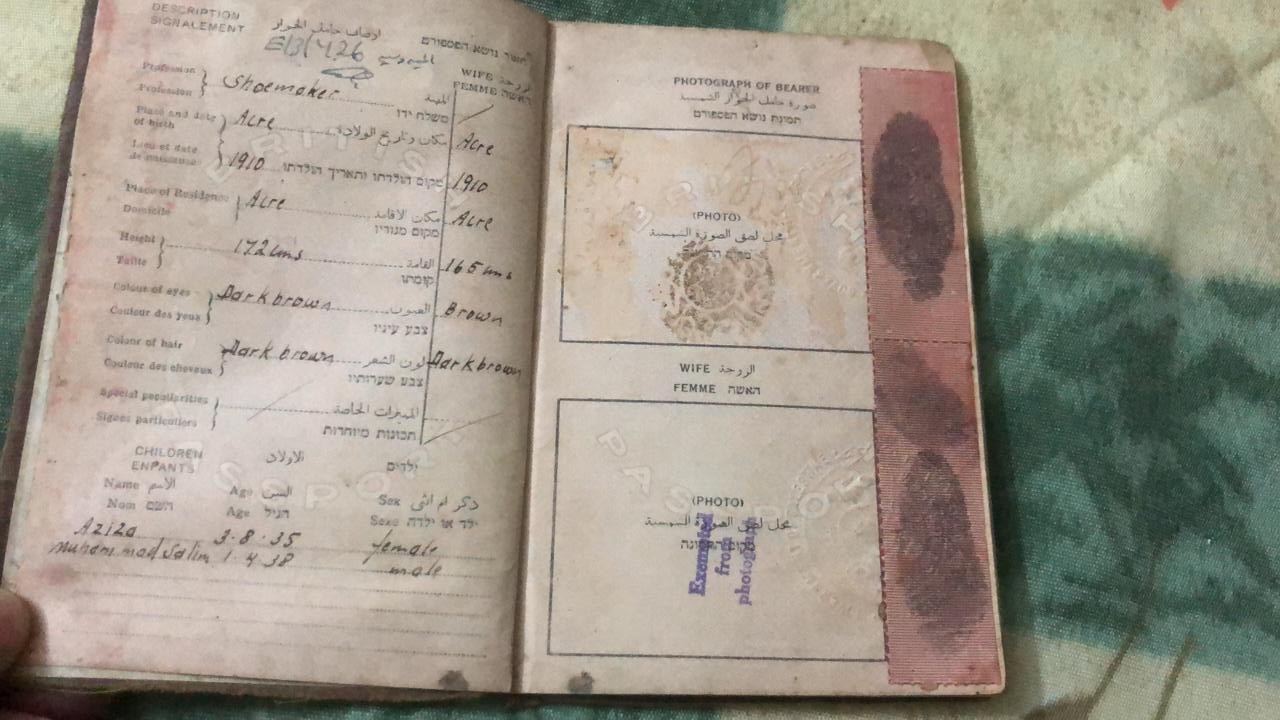 DESCRIPTION
SIGNALEMENT
اوصاف حامل الجواز
תאור נושא הפספורט
E/3/426
WIFE الزوجة
FEMME האשה
Profession
Profession
Shoemaker
المهنة
משלח ידו
Place and date
of birth
Acre
مكان وتاريخ الولادة
Acre
Lieu et date
de naissance
1910
מקום הולדתו ותאריך הולדתו
1910
Place of Residence
Domicile
Acre
مكان الاقامة
מקום מגוריו
Acre
Height
Taille
172 cms
القامة
קומתו
165 cms
Colour of eyes
Couleur des yeux
Dark brown
العيون
צבע עיניו
Brown
Colour of hair
Couleur des cheveux
Dark brown
لون الشعر
צבע שערותיו
Dark brown
Special peculiarities
Signes particuliers
المميزات الخاصة
תכונות מיוחדות
CHILDREN الاولاد ילדים
ENFANTS
Name الاسم Age السن Sex ذكر ام انثى
Nom השם Age הגיל Sexe ילד או ילדה
Aziza 3.8.35 female
Muhammad Salim 1.4.38 male
PHOTOGRAPH OF BEARER
صورة حامل الجواز الشمسية
תמונת נושא הפספורט
(PHOTO)
محل لصق الصورة الشمسية
WIFE الزوجة
FEMME האשה
(PHOTO)
محل لصق الصورة الشمسية
Exempted
from
photograph
BRITISH
PASSPORT